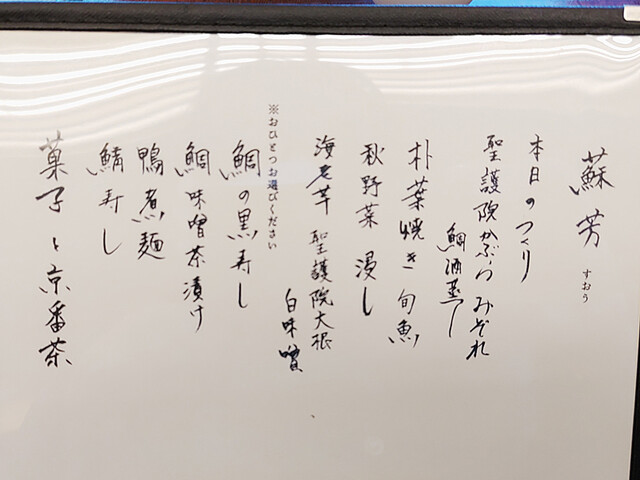 蘇芳
すおう
本日のつくり
聖護院かぶら みぞれ
鯛酒蒸し
朴葉焼き 旬魚
秋野菜 浸し
海老芋 聖護院大根
白味噌
※おひとつお選びください
鯛の黒寿し
鯛味噌茶漬け
鴨煮麺
鯖寿し
菓子と京番茶